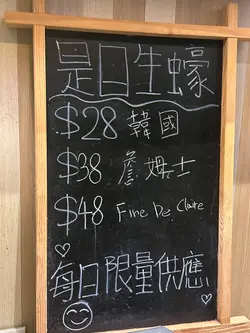 是日生蠔
$28 韓國
$38 詹姆士
$48 Fine De Claire
每日限量供應